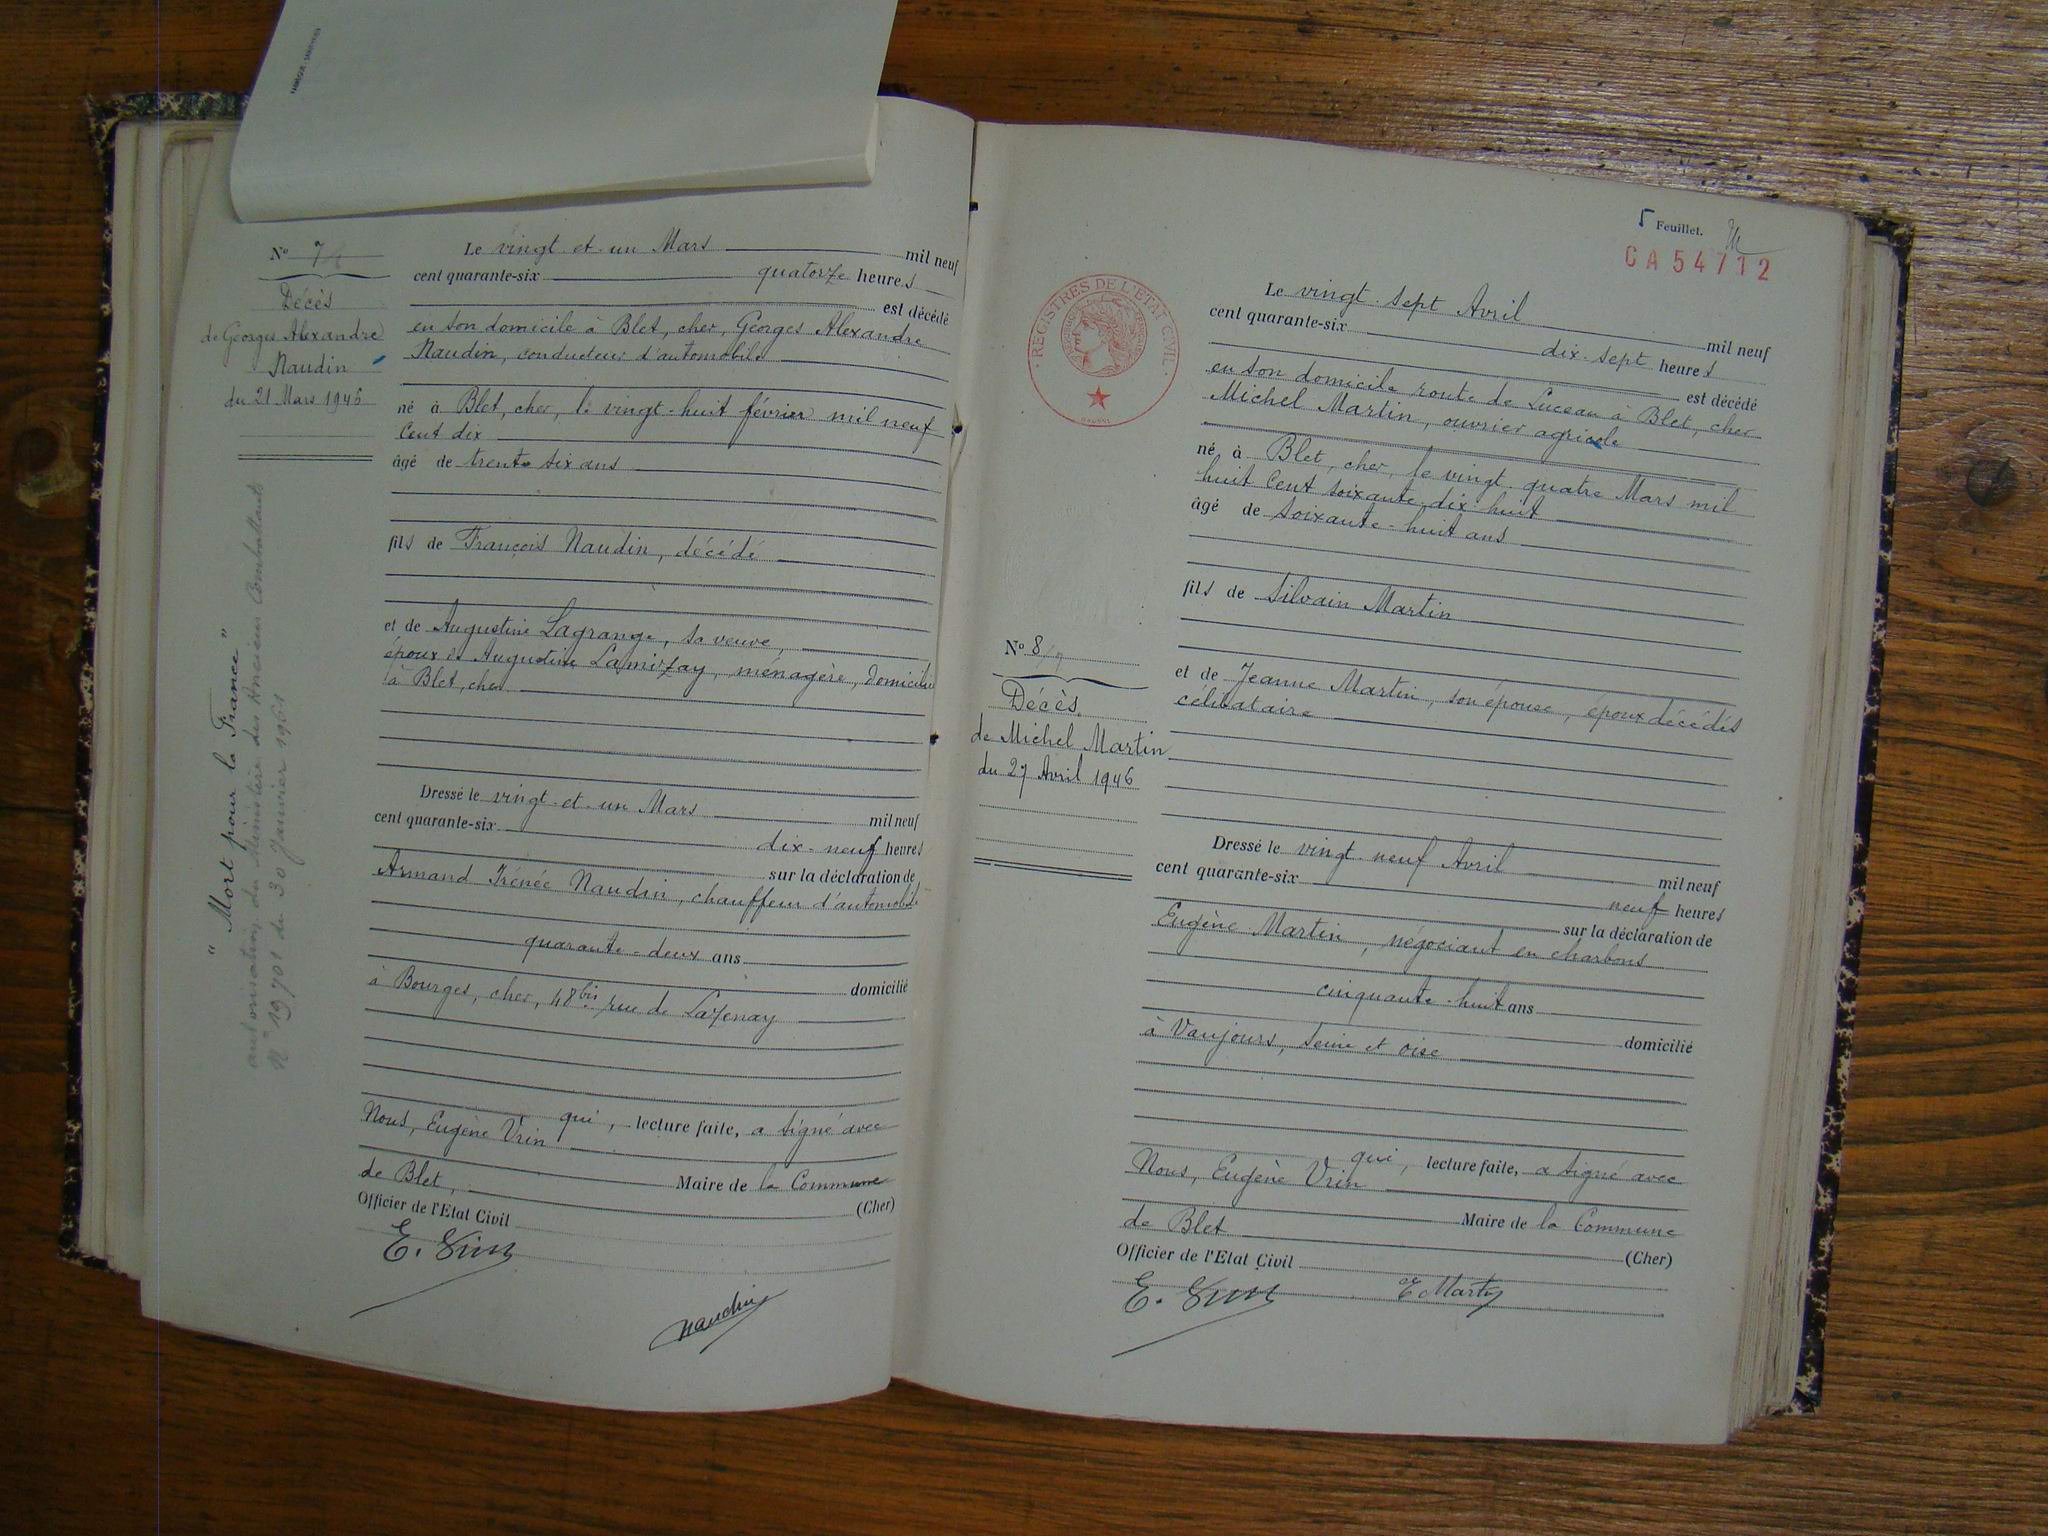 Nº 7
Décès
de Georges Alexandre
Naudin
du 21 Mars 1946
"Mort pour la France"
autorisation du Ministère des Anciens Combattants
Nº 19701 du 30 Janvier 1961
Le vingt et un Mars mil neuf
cent quarante-six quatorze heures
est décédé
en son domicile à Blet, cher, Georges Alexandre
Naudin, conducteur d'automobile
né à Blet, cher, le vingt-huit février mil neuf
Cent dix
âgé de trente six ans
fils de François Naudin, décédé
et de Augustine Lagrange, sa veuve,
époux de Augustine Lamirzay, ménagère, domicilié
à Blet, cher
Dressé le vingt et un Mars mil neuf
cent quarante-six dix-neuf heures
sur la déclaration de
Armand Irénée Naudin, chauffeur d'automobile
quarante-deux ans
domicilié
à Bourges, cher, 48bis rue de Lazenay
qui, lecture faite, a signé avec
Nous, Eugène Vrin
Maire de la Commune
de Blet, (Cher)
Officier de l'Etat Civil
E. Vrin
Naudin
5 Feuillet.
CA54712
REGISTRES DE L'ETAT CIVIL
Nº 8
Décès
de Michel Martin
du 27 Avril 1946
Le vingt-sept Avril mil neuf
cent quarante-six dix-sept heures
est décédé
en son domicile route de Luceau à Blet, cher
Michel Martin, ouvrier agricole
né à Blet, cher, le vingt quatre Mars mil
huit Cent soixante dix huit
âgé de soixante-huit ans
fils de Silvain Martin
et de Jeanne Martin, son épouse, époux décédés
célibataire
Dressé le vingt-neuf Avril mil neuf
cent quarante-six neuf heures
sur la déclaration de
Eugène Martin, négociant en charbons
cinquante-huit ans
domicilié
à Vaujours, Seine et oise
qui, lecture faite, a signé avec
Nous, Eugène Vrin
Maire de la Commune
de Blet (Cher)
Officier de l'Etat Civil
E. Vrin E Martin